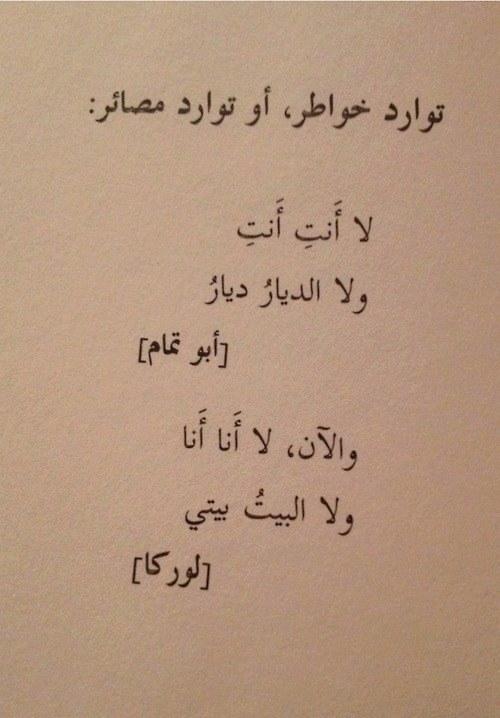 توارد خواطر، أو توارد مصائر:
لا أَنتِ أَنتِ
ولا الديارُ ديارُ
[أبو تمام]
والآن، لا أَنا أَنا
ولا البيتُ بيتي
[لوركا]